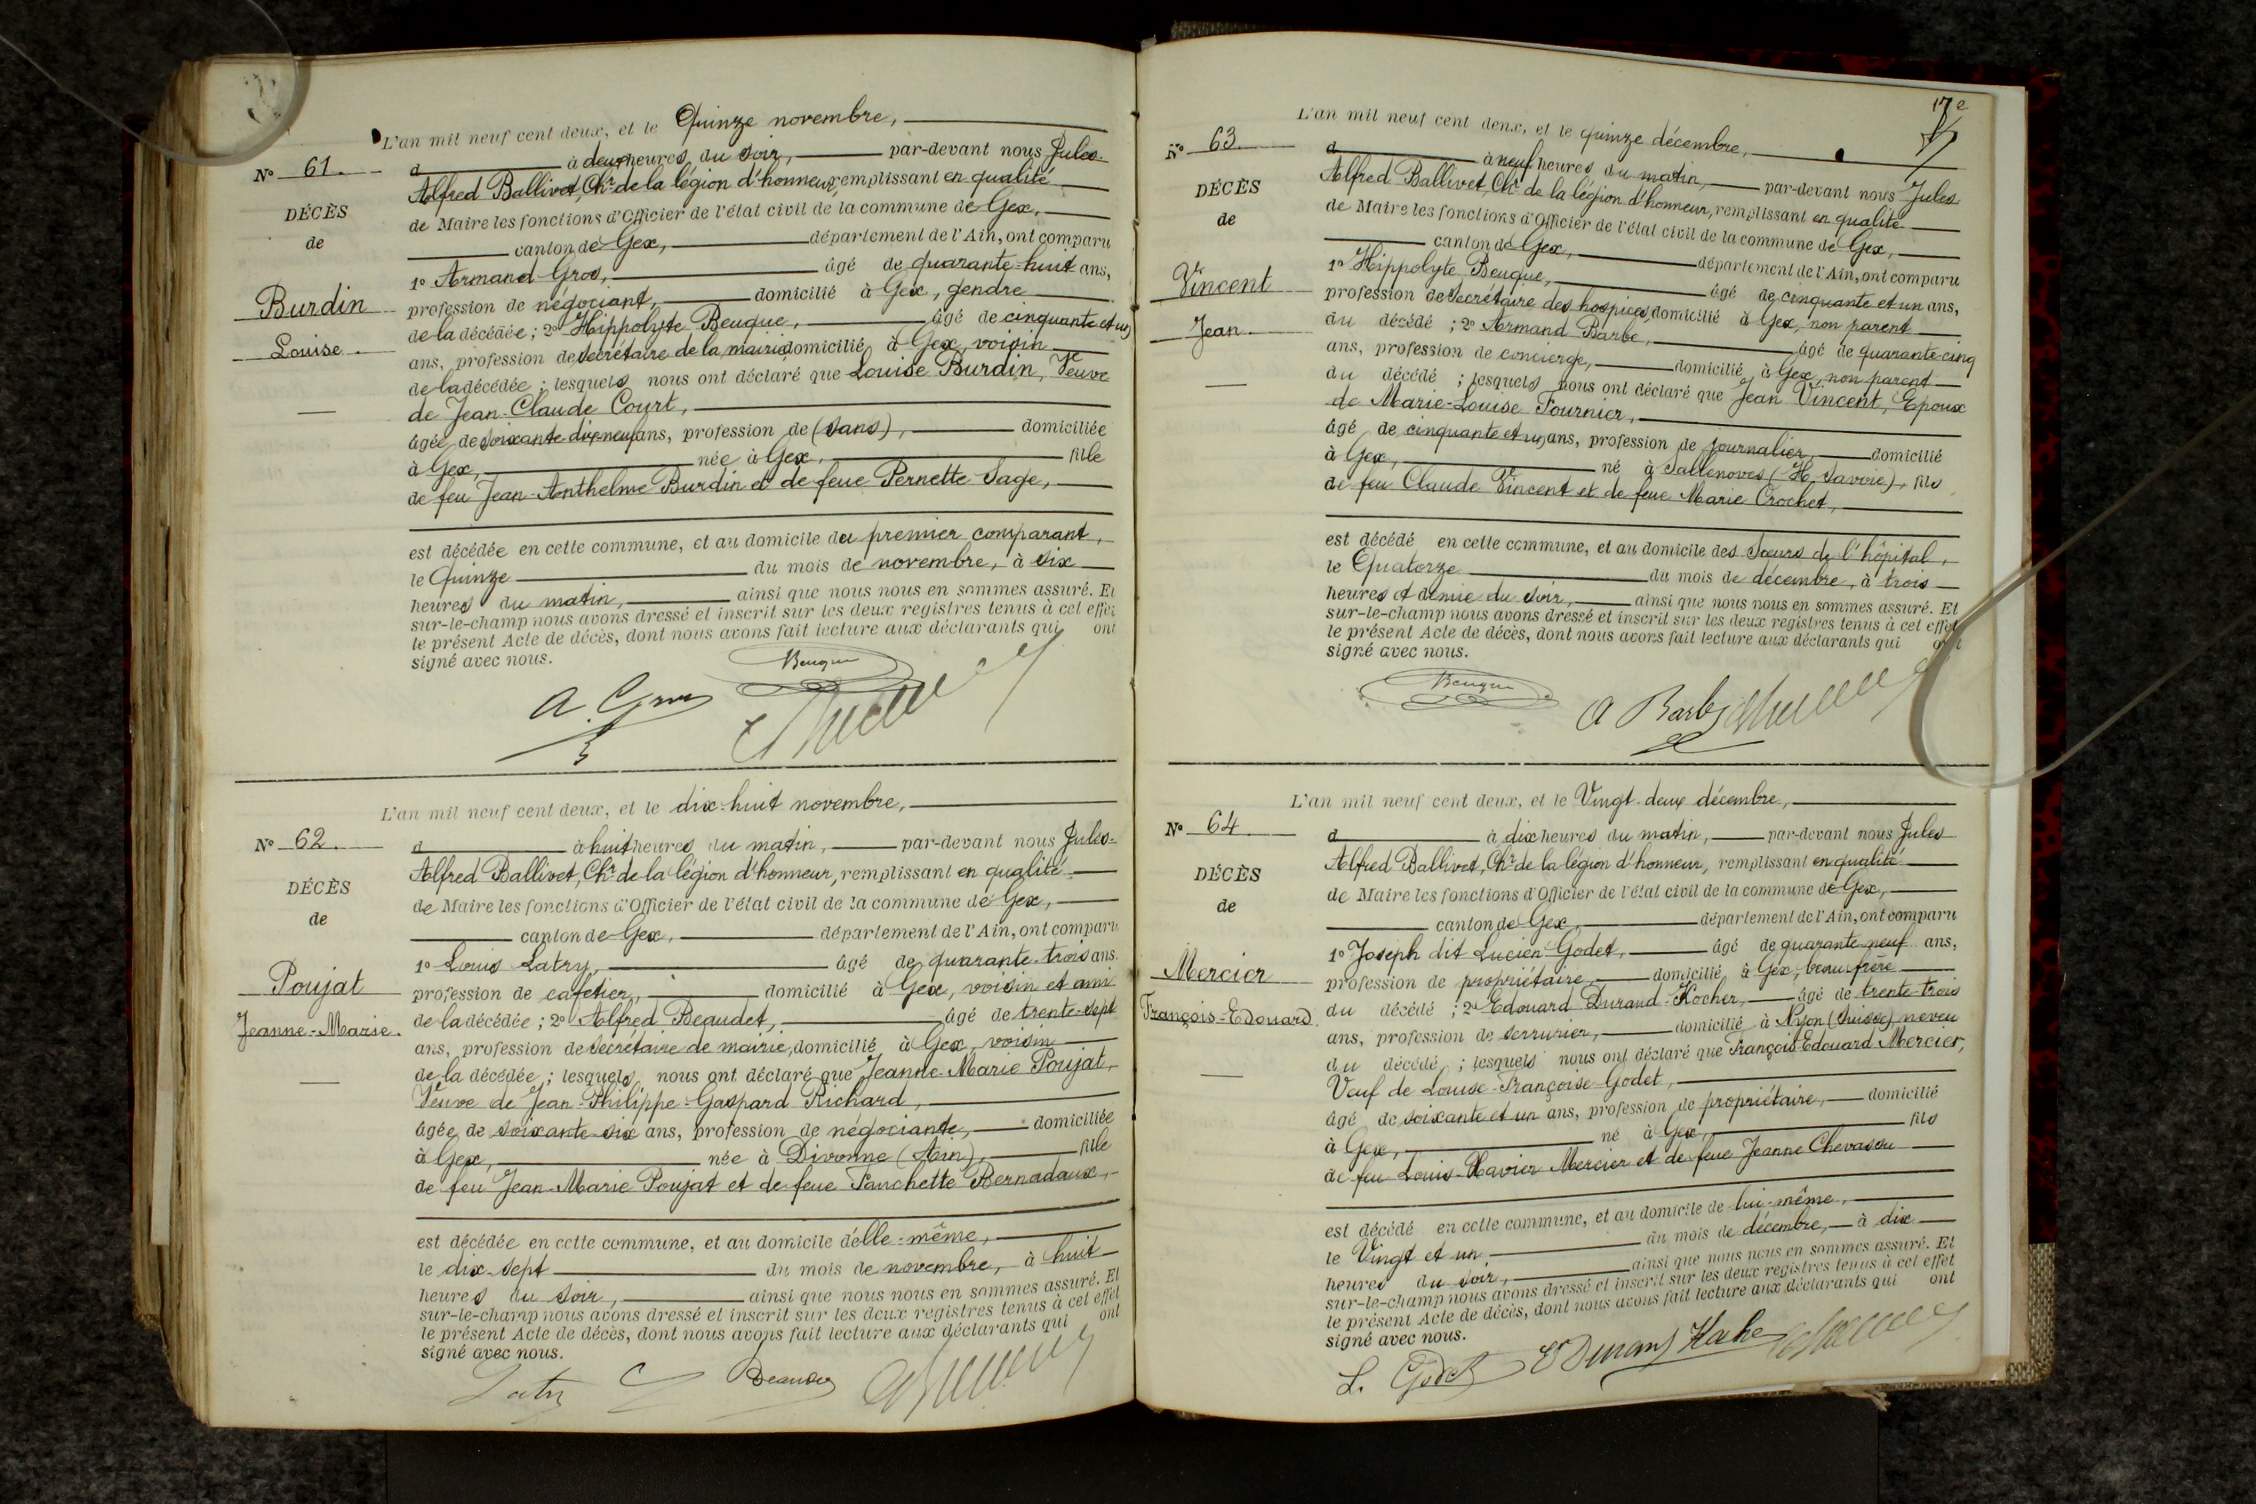 L'an mil neuf cent deux, et le Quinze novembre,
N° 61.
à à deux heures du soir, par-devant nous Jules-
Alfred Ballivet, Chr de la légion d'honneur, remplissant en qualité
DÉCÈS
de Maire les fonctions d'Officier de l'état civil de la commune de Gex,
de
canton de Gex, département de l'Ain, ont comparu
1° Armand Gros, âgé de quarante-huit ans,
Burdin
profession de négociant, domicilié à Gex, gendre
de la décédée ; 2° Hippolyte Beuque, âgé de cinquante et un
Louise.
ans, profession de secrétaire de la mairie domicilié à Gex, voisin
de la décédée ; lesquels nous ont déclaré que Louise Burdin, Veuve
de Jean-Claude Court,
âgée de soixante dix-neuf ans, profession de (sans), domiciliée
à Gex, née à Gex, fille
de feu Jean-Anthelme Burdin et de feue Pernette Sage,
est décédée en cette commune, et au domicile du premier comparant,
le Quinze du mois de novembre, à six
heures du matin, ainsi que nous nous en sommes assuré. Et
sur-le-champ nous avons dressé et inscrit sur les deux registres tenus à cet effet
le présent Acte de décès, dont nous avons fait lecture aux déclarants qui ont
signé avec nous.
Beuque
A. Gros
L'an mil neuf cent deux, et le dix-huit novembre,
N° 62.
à à huit heures du matin, par-devant nous Jules-
Alfred Ballivet, Chr de la légion d'honneur, remplissant en qualité
DÉCÈS
de Maire les fonctions d'Officier de l'état civil de la commune de Gex,
de
canton de Gex, département de l'Ain, ont comparu
1° Louis Latry, âgé de quarante-trois ans.
Poujat
profession de cafetier, domicilié à Gex, voisin et ami
Jeanne-Marie.
de la décédée ; 2° Alfred Beaudet, âgé de trente-sept
ans, profession de secrétaire de mairie, domicilié à Gex, voisin
de la décédée ; lesquels nous ont déclaré que Jeanne-Marie Poujat,
Veuve de Jean-Philippe-Gaspard Richard,
âgée de soixante-six ans, profession de négociante, domiciliée
à Gex, née à Divonne (Ain), fille
de feu Jean-Marie Poujat et de feue Fanchette Bernadaux,
est décédée en cette commune, et au domicile d'elle-même,
le dix-sept du mois de novembre, à huit
heures du soir, ainsi que nous nous en sommes assuré. Et
sur-le-champ nous avons dressé et inscrit sur les deux registres tenus à cet effet
le présent Acte de décès, dont nous avons fait lecture aux déclarants qui ont
signé avec nous.
Latry Beaudet
17e
L'an mil neuf cent deux, et le quinze décembre,
N° 63
à à neuf heures du matin, par-devant nous Jules
Alfred Ballivet, Chr de la légion d'honneur, remplissant en qualité
DÉCÈS
de Maire les fonctions d'Officier de l'état civil de la commune de Gex,
de
canton de Gex, département de l'Ain, ont comparu
1° Hippolyte Beuque, âgé de cinquante et un ans,
Vincent
profession de secrétaire des hospices, domicilié à Gex, non parent
Jean.
du décédé ; 2° Armand Barbe, âgé de quarante-cinq
ans, profession de concierge, domicilié à Gex, non parent
du décédé ; lesquels nous ont déclaré que Jean Vincent, Epoux
de Marie-Louise Fournier,
âgé de cinquante et un ans, profession de journalier, domicilié
à Gex, né à Sallenoves (H. Savoie), fils
de feu Claude Vincent et de feue Marie Crochet,
est décédé en cette commune, et au domicile des Soeurs de l'hôpital,
le Quatorze du mois de décembre, à trois
heures et demie du soir, ainsi que nous nous en sommes assuré. Et
sur-le-champ nous avons dressé et inscrit sur les deux registres tenus à cet effet
le présent Acte de décès, dont nous avons fait lecture aux déclarants qui ont
signé avec nous.
Beuque
A Barbe
L'an mil neuf cent deux, et le Vingt-deux décembre,
N° 64
à à dix heures du matin, par-devant nous Jules
Alfred Ballivet, Chr de la légion d'honneur, remplissant en qualité
DÉCÈS
de Maire les fonctions d'Officier de l'état civil de la commune de Gex,
de
canton de Gex, département de l'Ain, ont comparu
1° Joseph dit Lucien Godet, âgé de quarante-neuf ans,
Mercier
profession de propriétaire, domicilié à Gex, beau-frère
François-Edouard.
du décédé ; 2° Edouard Durand-Kocher, âgé de trente-trois
ans, profession de serrurier, domicilié à Nyon (Suisse) neveu
du décédé ; lesquels nous ont déclaré que François-Edouard Mercier,
Veuf de Louise-Françoise Godet,
âgé de soixante et un ans, profession de propriétaire, domicilié
à Gex, né à Gex, fils
de feu Louis-Xavier Mercier et de feue Jeanne Chevassu
est décédé en cette commune, et au domicile de lui-même,
le Vingt et un du mois de décembre, à dix
heures du soir, ainsi que nous nous en sommes assuré. Et
sur-le-champ nous avons dressé et inscrit sur les deux registres tenus à cet effet
le présent Acte de décès, dont nous avons fait lecture aux déclarants qui ont
signé avec nous.
L. Godet Ed Durand